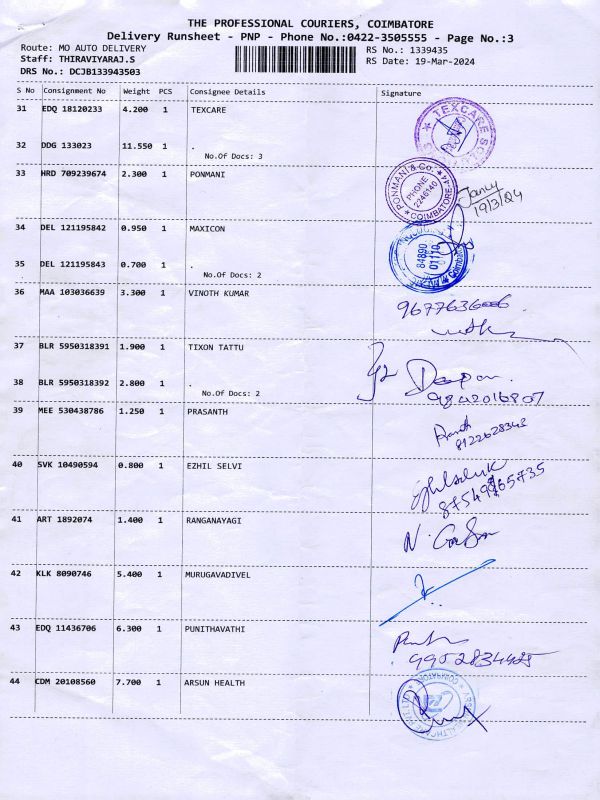 THE PROFESSIONAL COURIERS, COIMBATORE
Delivery Runsheet - PNP - Phone No.:0422-3505555 - Page No.:3
Route: MO AUTO DELIVERY RS No.: 1339435
Staff: THIRAVIYARAJ.S RS Date: 19-Mar-2024
DRS No.: DCJB133943503
S No Consignment No Weight PCS Consignee Details Signature
31 EDQ 18120233 4.200 1 TEXCARE
TEXCARE
32 DDG 133023 11.550 1 .
No.Of Docs: 3
33 HRD 709239674 2.300 1 PONMANI
PONMANI & Co.
PHONE
2246140
COIMBATORE-44
19/3/24
34 DEL 121195842 0.950 1 MAXICON
84890
01110
35 DEL 121195843 0.700 1 .
No.Of Docs: 2
36 MAA 103036639 3.300 1 VINOTH KUMAR
37 BLR 5950318391 1.900 1 TIXON TATTU
38 BLR 5950318392 2.800 1 .
No.Of Docs: 2
9842016807
39 MEE 530438786 1.250 1 PRASANTH
8122628343
40 SVK 10490594 0.800 1 EZHIL SELVI
41 ART 1892074 1.400 1 RANGANAYAGI
42 KLK 8090746 5.400 1 MURUGAVADIVEL
43 EDQ 11436706 6.300 1 PUNITHAVATHI
44 CDM 20108560 7.700 1 ARSUN HEALTH